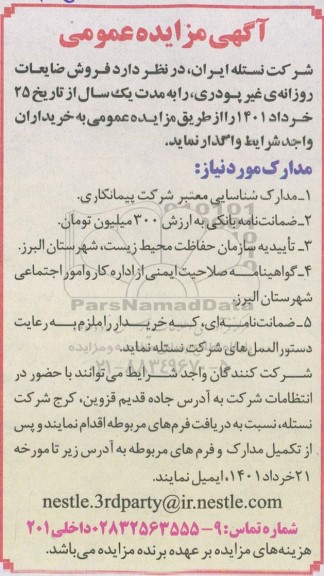 آگهی مزایده عمومی
شرکت نستله ایران، در نظر دارد فروش ضایعات
روزانه‌ی غیر پودری، را به مدت یک سال از تاریخ ۲۵
خرداد ۱۴۰۱ را از طریق مزایده عمومی به خریداران
واجد شرایط واگذار نماید.
مدارک مورد نیاز:
۱ـ مدارک شناسایی معتبر شرکت پیمانکاری.
۲ـ ضمانت‌نامه بانکی به ارزش ۳۰۰ میلیون تومان.
۳ـ تأییدیه سازمان حفاظت محیط زیست، شهرستان البرز.
۴ـ گواهینامه صلاحیت ایمنی از اداره کار و امور اجتماعی
شهرستان البرز.
ParsNamadData
۵ـ ضمانت‌نامه‌ای، که خریدار را ملزم به رعایت
دستورالعمل‌های شرکت نستله نماید.
۰۲۱-۸۸۳۴۹۶۷۰
شرکت کنندگان واجد شرایط می‌توانند با حضور در
انتظامات شرکت به آدرس جاده قدیم قزوین، کرج شرکت
نستله، نسبت به دریافت فرم‌های مربوطه اقدام نمایند و پس
از تکمیل مدارک و فرم های مربوطه به آدرس زیر تا مورخه
۲۱ خرداد ۱۴۰۱، ایمیل نمایند.
nestle.3rdparty@ir.nestle.com
شماره تماس: ۹-۰۲۸۳۲۵۶۳۵۵۵ داخلی ۲۰۱
هزینه‌های مزایده بر عهده برنده مزایده می‌باشد.